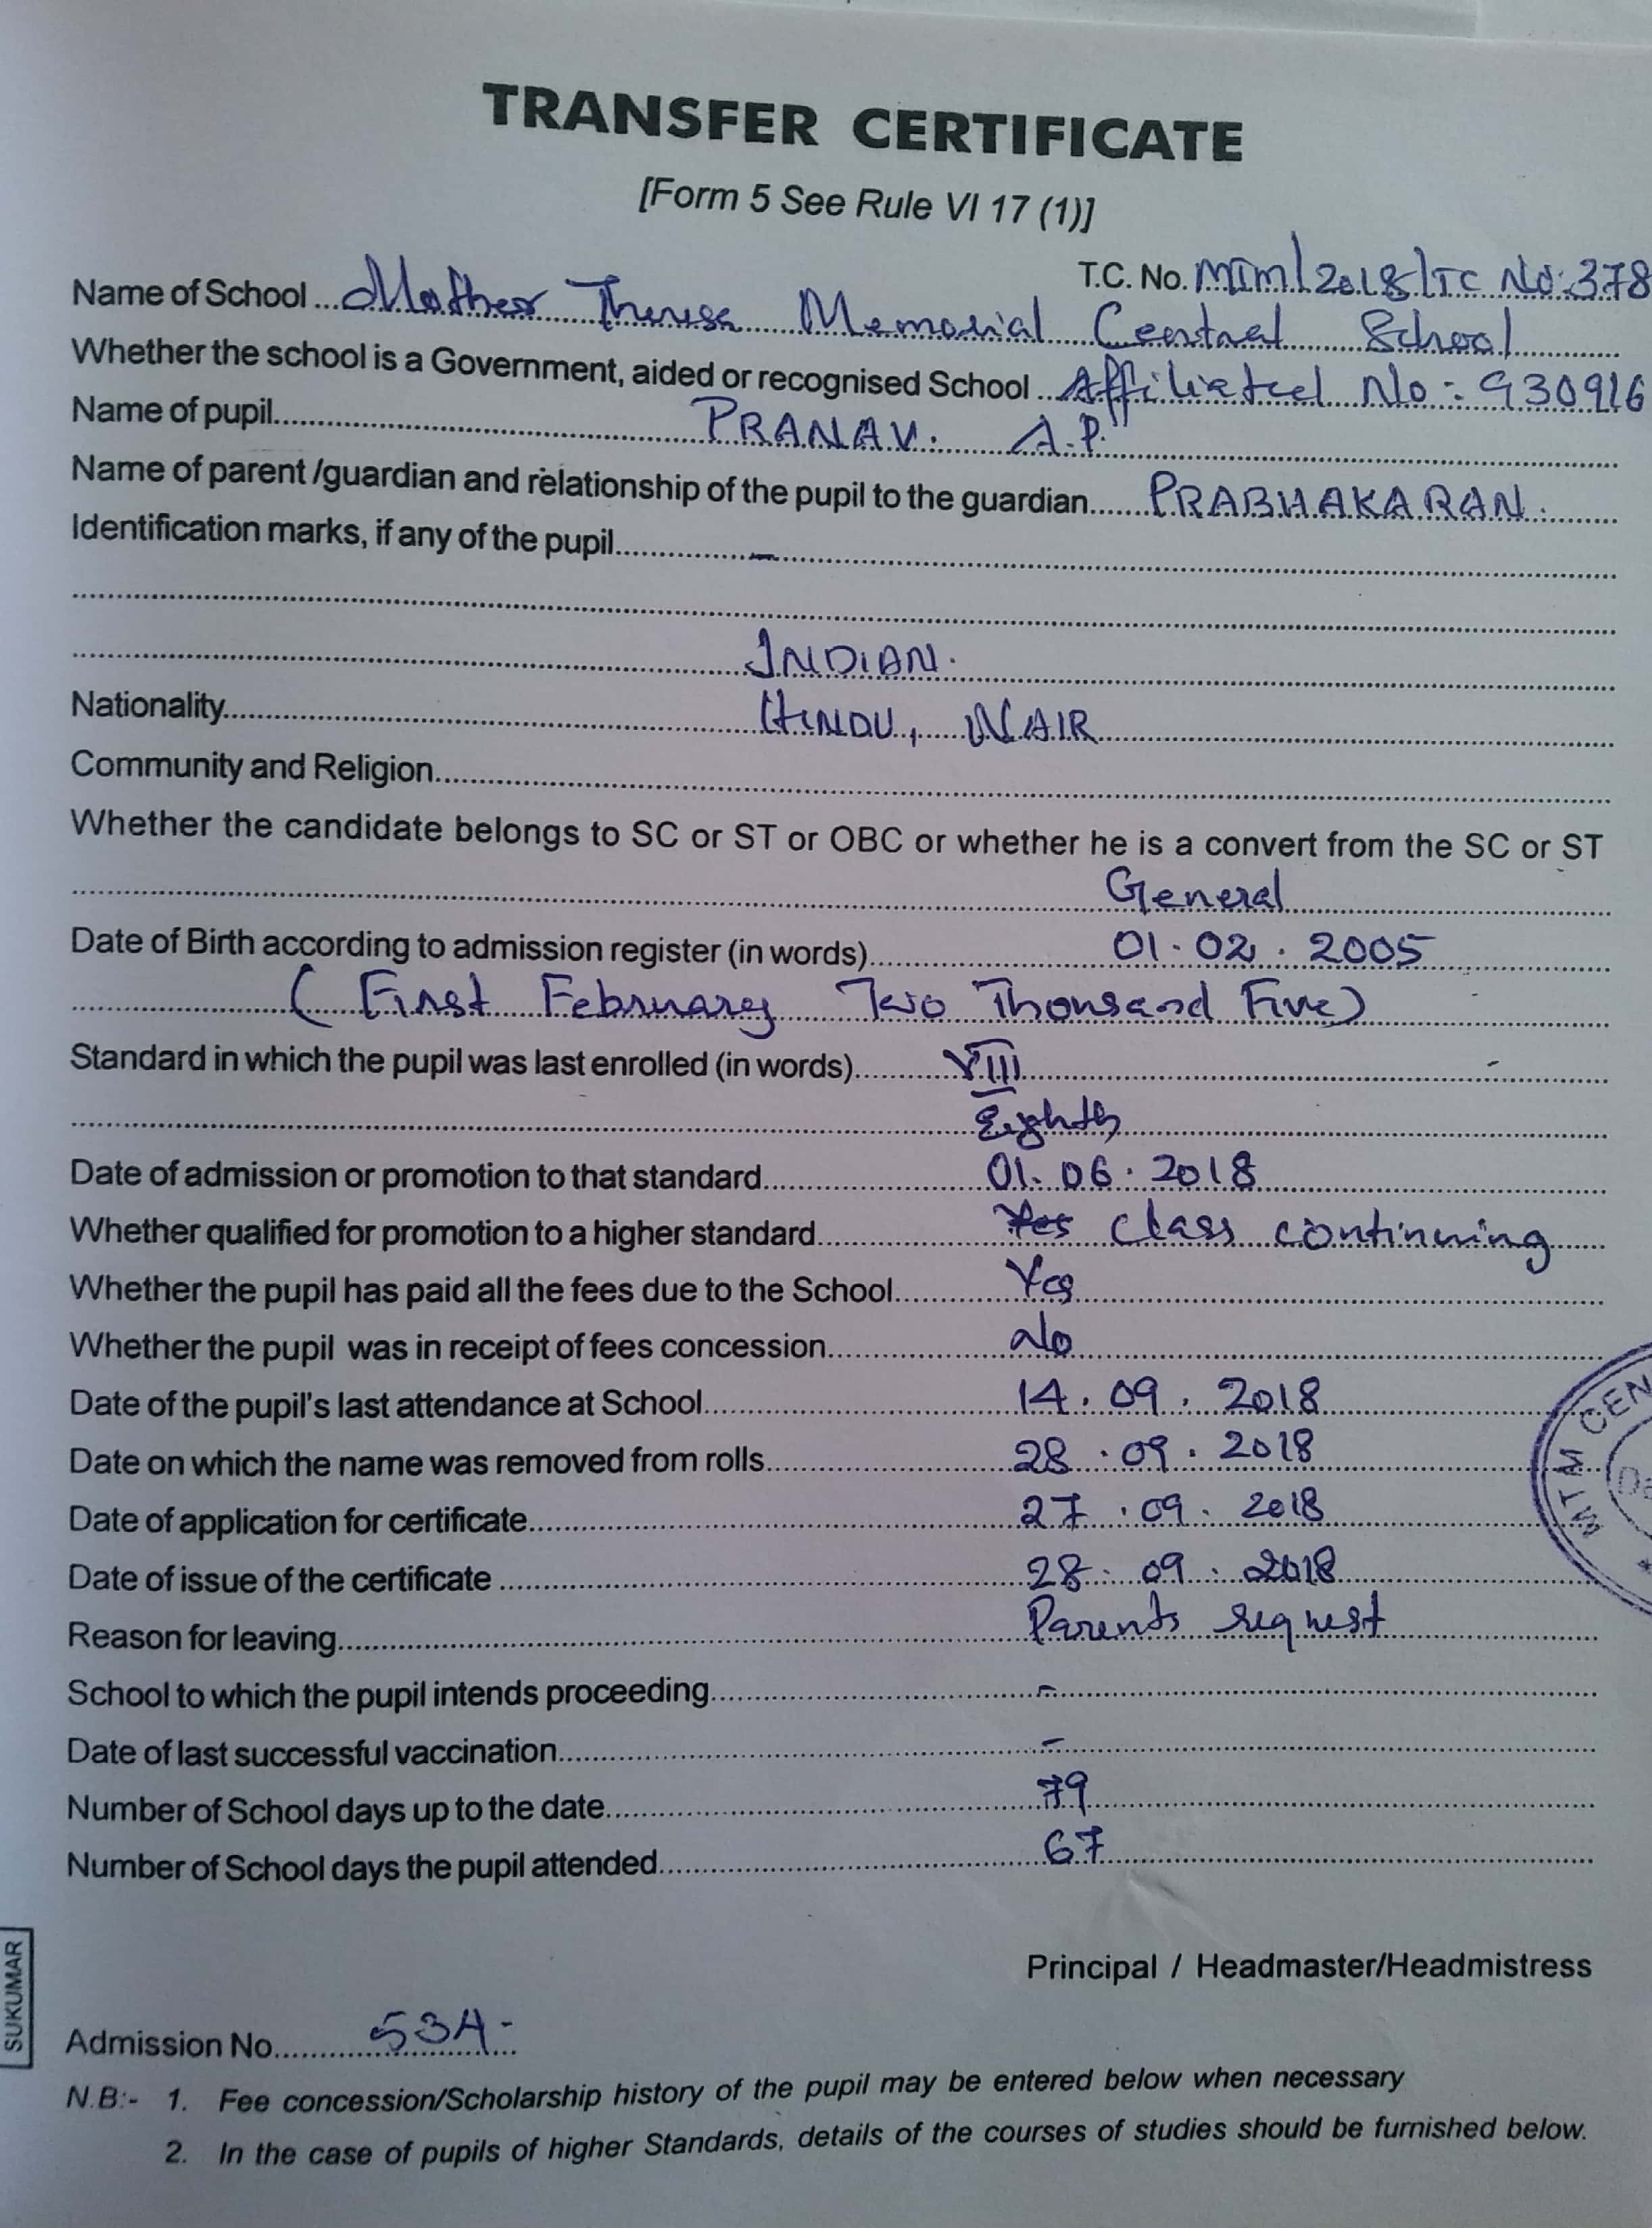 TRANSFER CERTIFICATE
[Form 5 See Rule VI 17 (1)]
T.C. No. MTM/2018/TC No:378
Name of School ... Mother Theresa Memorial Central School
Whether the school is a Government, aided or recognised School ... Affiliated No:- 930916
Name of pupil........ PRANAV. A.P.
Name of parent /guardian and relationship of the pupil to the guardian....... PRABHAKARAN.
Identification marks, if any of the pupil........ –
INDIAN.
Nationality........ HINDU, NAIR
Community and Religion........
Whether the candidate belongs to SC or ST or OBC or whether he is a convert from the SC or ST
General
Date of Birth according to admission register (in words)........ 01.02.2005
(First February Two Thousand Five)
Standard in which the pupil was last enrolled (in words)........ VIII
Eighth
Date of admission or promotion to that standard........ 01.06.2018
Whether qualified for promotion to a higher standard........ Yes class continuing
Whether the pupil has paid all the fees due to the School........ Yes
Whether the pupil was in receipt of fees concession........ No
Date of the pupil's last attendance at School........ 14.09.2018
Date on which the name was removed from rolls........ 28.09.2018
Date of application for certificate........ 27.09.2018
Date of issue of the certificate ........ 28.09.2018
Reason for leaving........ Parents request
School to which the pupil intends proceeding........ –
Date of last successful vaccination........ –
Number of School days up to the date........ 79
Number of School days the pupil attended........ 67
MTM CEN
Principal / Headmaster/Headmistress
SUKUMAR
Admission No........ 534-
N.B:- 1. Fee concession/Scholarship history of the pupil may be entered below when necessary
2. In the case of pupils of higher Standards, details of the courses of studies should be furnished below.